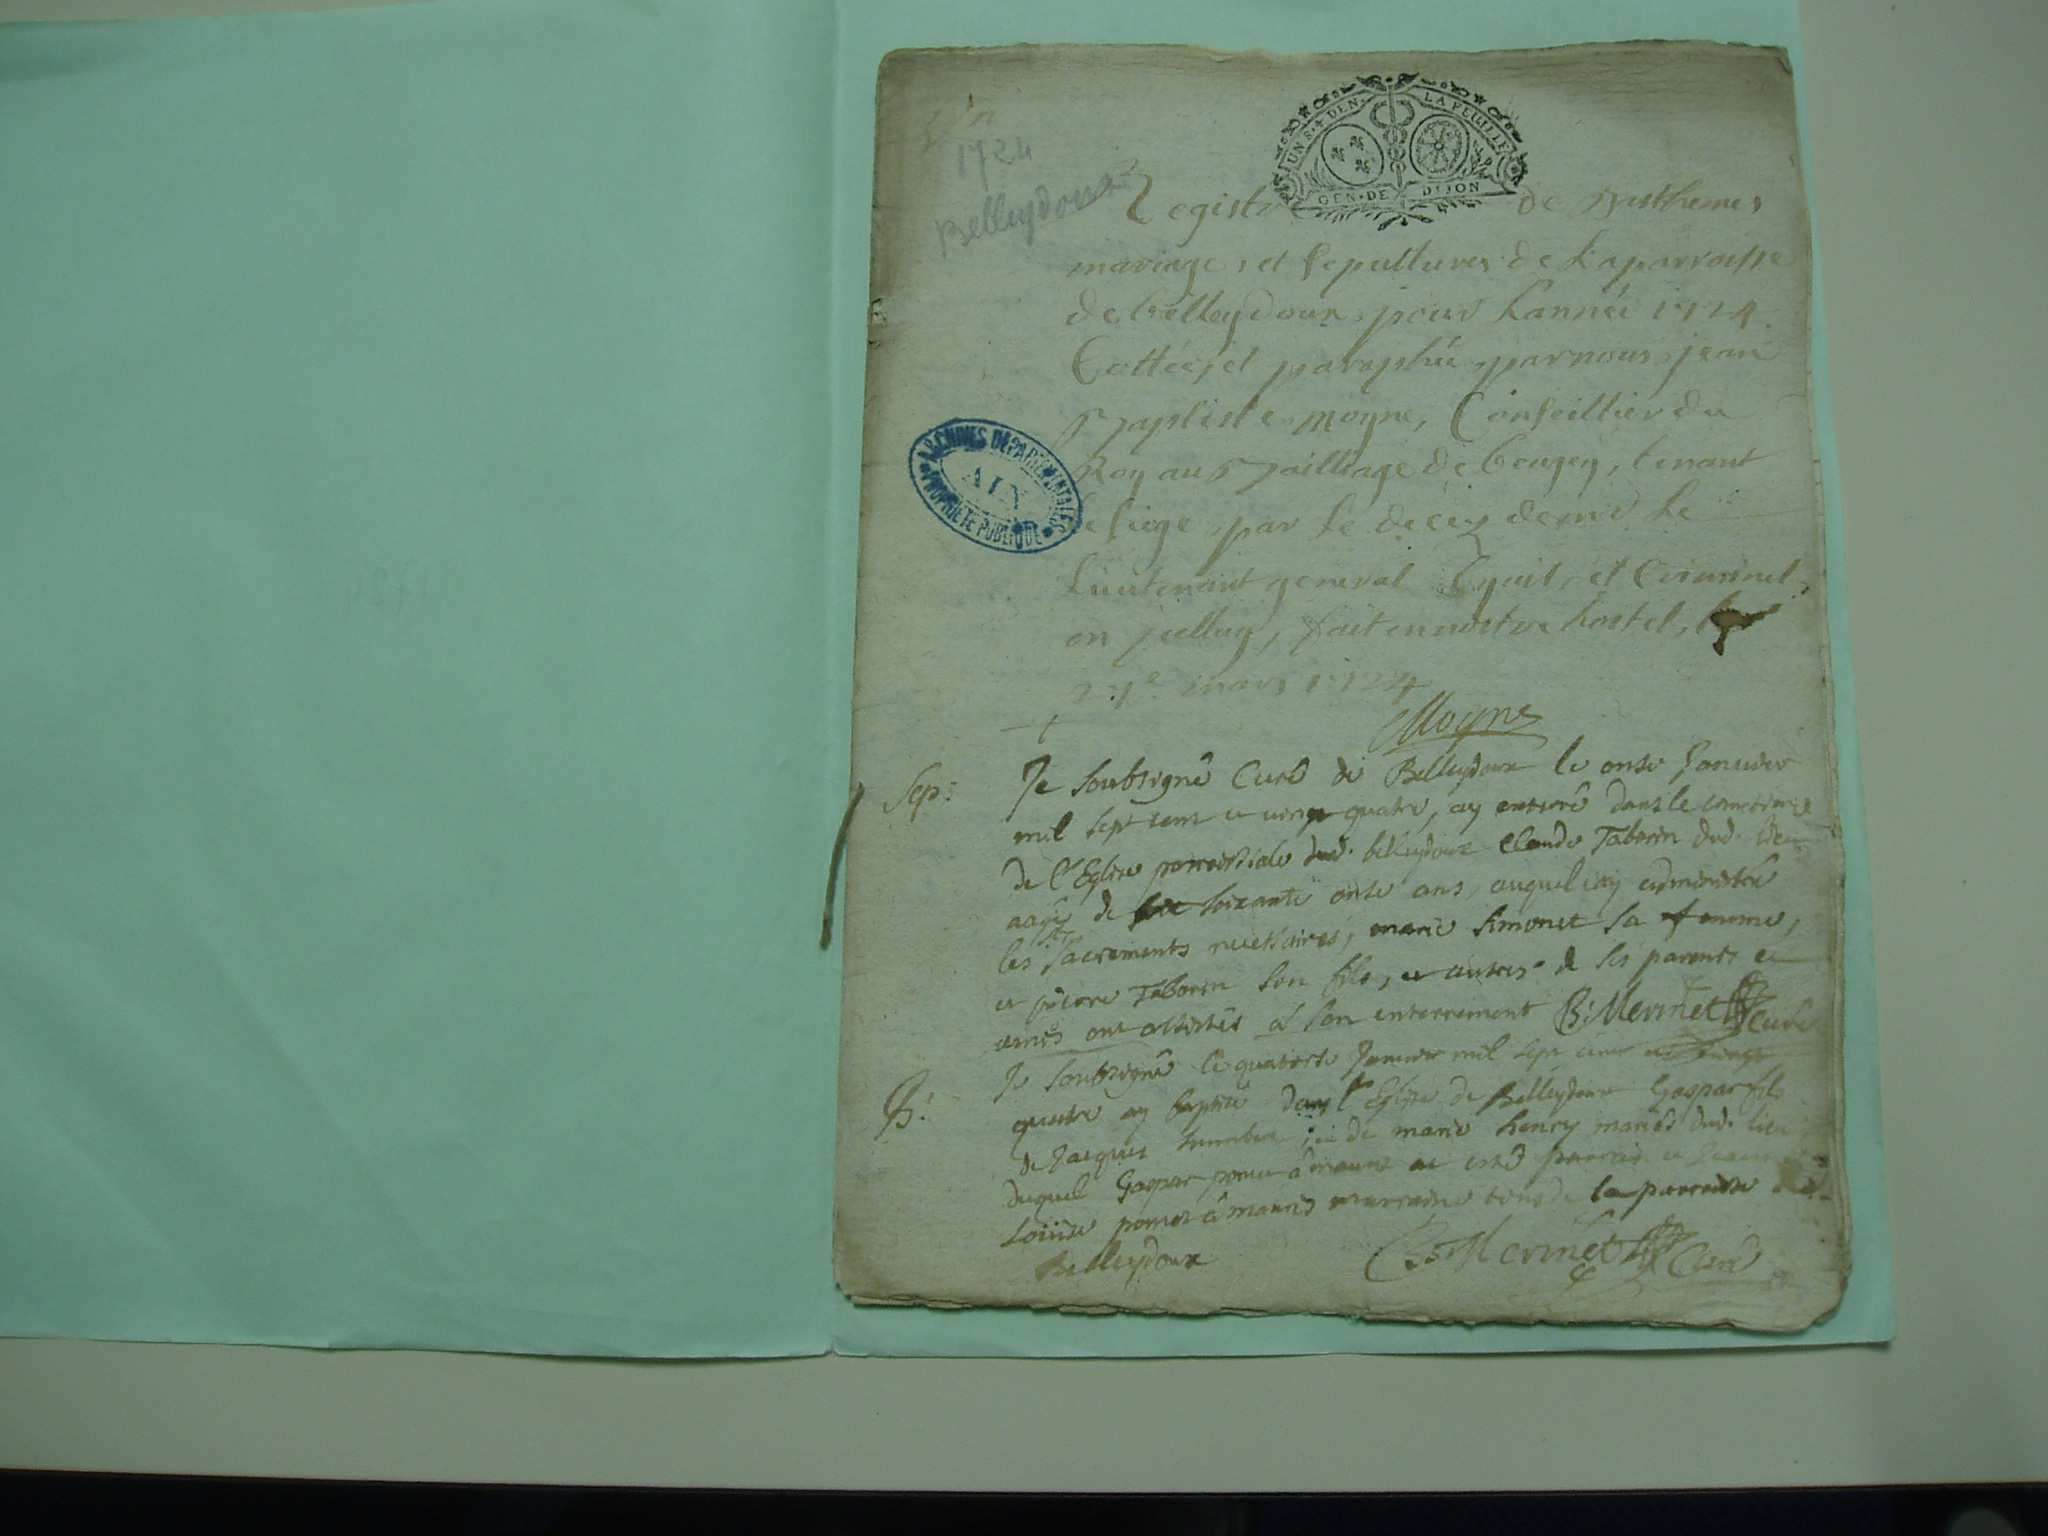 1724
Belleydoux
UN S. 4 DEN. LA FEUILLE
GEN. DE DIJON
Registre de Bathemes
mariage, et Sepultures de Laparroisse
de belleydoux, pour Lanneé 1724.
Cotteé, et paraphée par nous, jean
Baptiste moyne, Conseillier du
Roy au Bailliage de beugey, tenant
Le siege, par Le deceÿ de mr Le
Lieutenant general Cyvil, et Criminel,
en jcelluy, fait en nostre hostel, le
27e mars 1724
Moyne
ARCHIVES DÉPARTEMENTALES
AIN
PROPRIÉTÉ PUBLIQUE
Sep:
Je soubsigné Curé de Belleydoux le onse Januier
mil sept cent et vingt quatre, ay enterré dans le cimetiere
de l'Eglise parroissiale dud. belleydoux Claude Taborin dud. lieu
aagé de soixante onse ans, auquel j'ay administré
les sts sacrements necessaires, marie simonet sa femme,
et pierre Taborin son fils, et autres de ses parents et
amis ont assistés a son enterrement B: Mermet Curé
B:
Je soubsigné le quatorse Januier mil sept cent et vingt
quatre ay baptisé dans l'Eglise de Belleydoux Gaspar fils
de Jacques et de marie henry mariés dud. lieu,
duquel Gaspar a esté parrain et
Loüise marraine tous de la parroisse de
Belleydoux
B: Mermet Curé